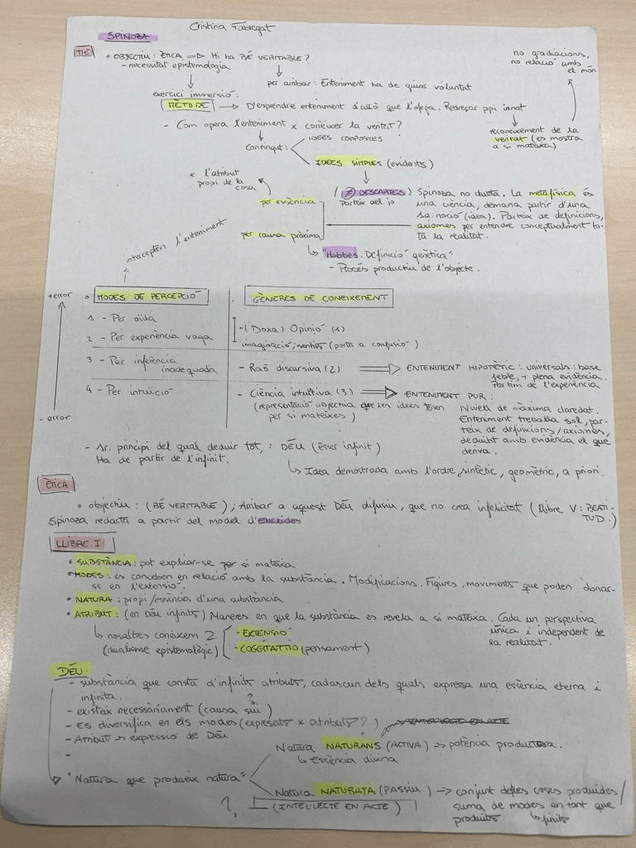 Cristina Fabregat
SPINOZA
TIE
• OBJECTIU: ÈTICA => Hi ha BÉ VERITABLE?
- necessitat epistemologia
no gradacions,
no relació amb
el món
per arribar: Enteniment ha de guiar voluntat
exercici immersió.
MÈTODE → Desprendre enteniment d'allò que l'ofega. Redreçar ppi innat
- Com opera l'enteniment x conèixer la veritat?
reconeixement de la
veritat (es mostra
a si mateixa)
contingut:
IDEES COMPOSTES
IDEES SIMPLES (evidents)
x l'atribut
propi de la
cosa
per essència
per causa pròxima
(≠ DESCARTES) Spinoza no dubta. La metafísica és
Parteix del jo
una ciència, demana partir d'una
1a. noció (idea). Parteix de definicions,
axiomes per entendre conceptualment to-
ta la realitat.
"Hobbes. Definició genètica"
- Procés productiu de l'objecte.
intercepten l'enteniment
+error
- error
• MODES DE PERCEPCIÓ
GÈNERES DE CONEIXEMENT
1 - Per oïda
2 - Per experiència vaga
3 - Per inferència
inadequada
4 - Per intuïció
-(Doxa) Opinió (1)
imaginació, sentits (porta a confusió)
- Raó discursiva (2) => ENTENIMENT HIPOTÈTIC: universals, base
feble, + plena evidència.
Partim de l'experiència
- Ciència intuïtiva (3) => ENTENIMENT PUR:
(representació objectiva que les idees tenen
per si mateixes)
Nivell de màxima claredat.
Enteniment treballa sol, par-
teix de definicions/axiomes,
deduint amb evidència el que
deriva.
- 1r. principi del qual deduir tot,: DÉU (ésser infinit)
Ha de partir de l'infinit.
↳ Idea demostrada amb l'ordre sintètic, geomètric, a priori.
ÈTICA
• objectiu: (BÉ VERITABLE); Arribar a aquest Déu difusiu, que no crea infelicitat (Llibre V: BEATI-
TUD.)
Spinoza redacta a partir del model d'Euclides
LLIBRE I
• SUBSTÀNCIA: pot explicar-se per si mateixa
• MODES: es conceben en relació amb la substància. Modificacions. Figures, moviments que poden donar-
se en l'extensió
• NATURA: propi/essència d'una substància
• ATRIBUT: (en Déu infinits) Maneres en que la substància es revela a si mateixa. Cada un perspectiva
única i independent de
la realitat.
↳ nosaltres coneixem 2
(dualisme epistemològic)
- EXTENSIÓ
- COGGITATTIO (pensament)
DÉU:
- substància que consta d'infinits atributs, cadascun dels quals expressa una essència eterna i
infinita.
- existeix necessàriament (causa sui)
?
- Es diversifica en els modes (expressats x atributs??)
- Atribut → expressió de Déu
-
"Natura que produeix natura"
Natura NATURANS (ACTIVA) → potència productora.
↳ essència divina
Natura NATURATA (PASSIU) → conjunt de les coses produïdes/
suma de modes en tant que
produïts
↳ finits
?
(INTEL·LECTE EN ACTE)